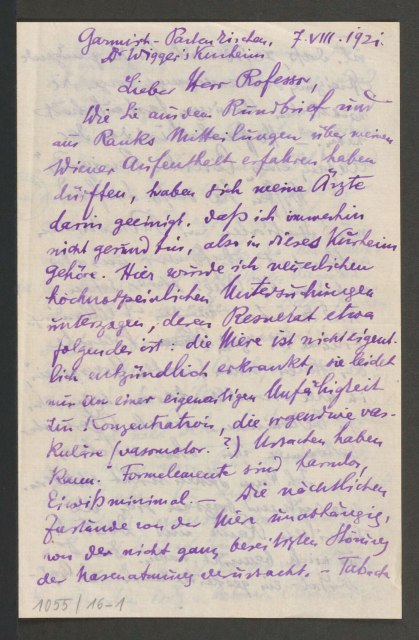 Garmisch-Partenkirchen, 7.VIII.1921.
Dr Wigger's Kurheim
Lieber Herr Professor,
Wie Sie aus dem Rundbrief und
aus Ranks Mitteilungen über meinen
Wiener Aufenthalt erfahren haben
dürften, haben sich meine Ärzte
darin geeinigt, daß ich immerhin
nicht gesund bin, also in dieses Kurheim
gehöre. Hier wurde ich neuerlichen
hochnotpeinlichen Untersuchungen
unterzogen, deren Resultat etwa
folgendes ist: die Niere ist nicht eigent-
lich entzündlich erkrankt, sie leidet
nur an einer eigenartigen Unfähigkeit
zur Konzentration, die irgendwie vas-
kuläre (vasomotor.?) Ursachen haben
kann. Formelemente sind harmlos,
Eiweiß minimal. — Die nächtlichen
Zustände von der Niere unabhängig,
von der nicht ganz beseitigten Störung
der Nasenatmung verursacht. — Tabak
1055/16-1